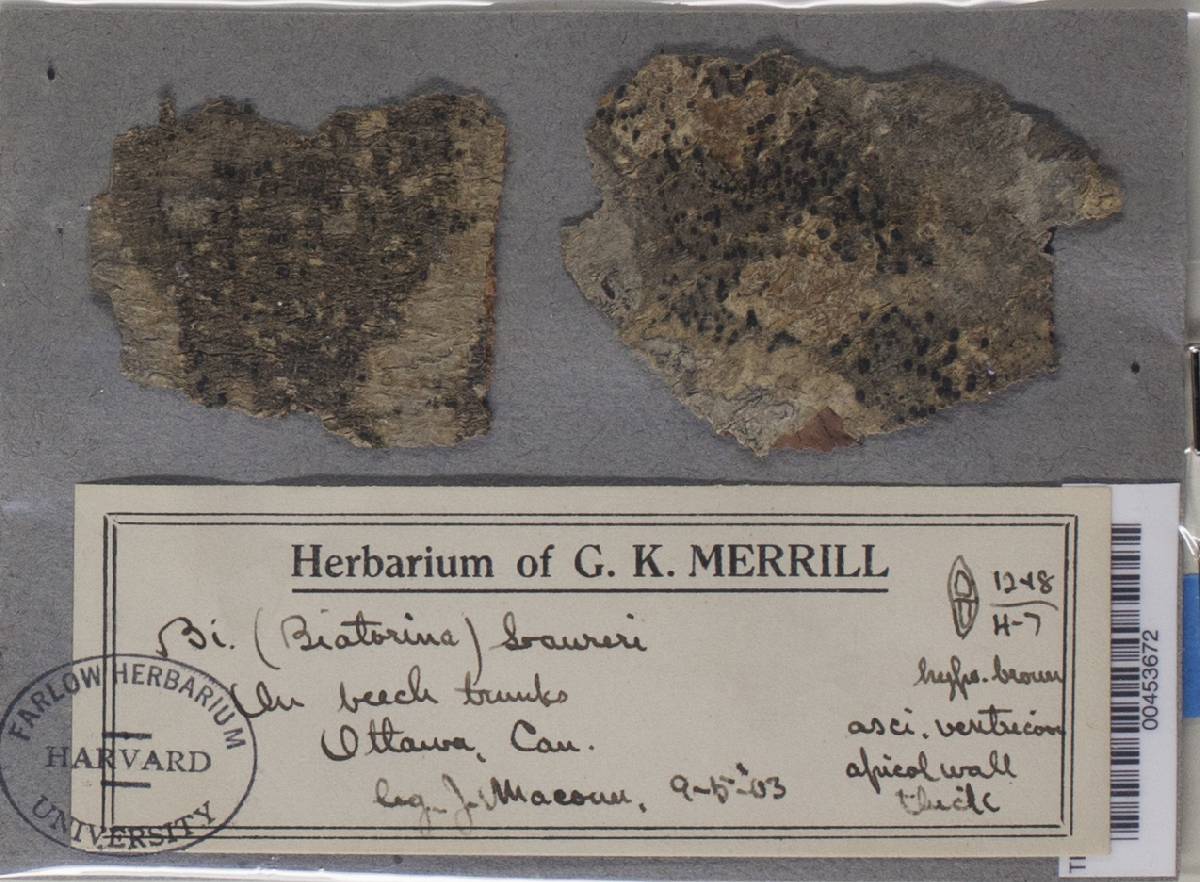 Herbarium of G. K. MERRILL
Bi. (Biatorina)
On beech trunks
Ottawa, Can.
leg. J. Macoun, 9-5-'03
12-18
4-7
hyp. brown
asci. ventricon
apical wall
thick
FARLOW HERBARIUM
HARVARD
UNIVERSITY
00453672